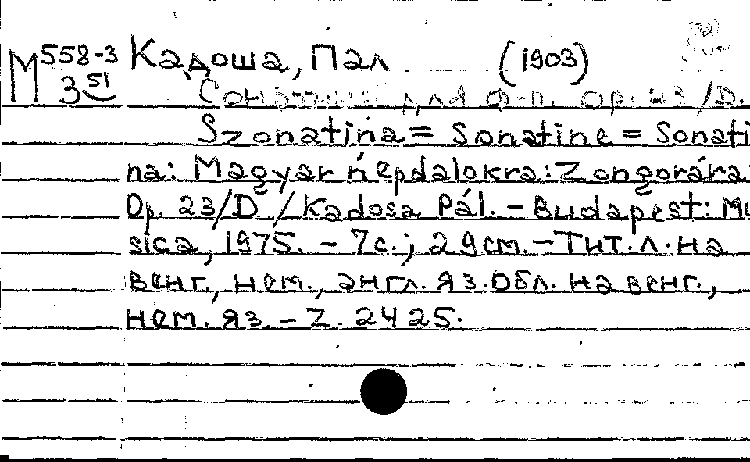 М 558-3 Кадоша, Пал (1903)
3 51
Сонатина для ф-п. Op. 23/D.
Szonatina = Sonatine = Sonati
na: Magyar népdalokra: Zongorára
Op. 23/D / Kadosa Pál. - Budapest: Mu
sica, 1975. - 7 с.; 29 cm. - Тит. л. на
венг., нем., англ. яз. Обл. на венг.,
нем. яз. - Z. 2425.